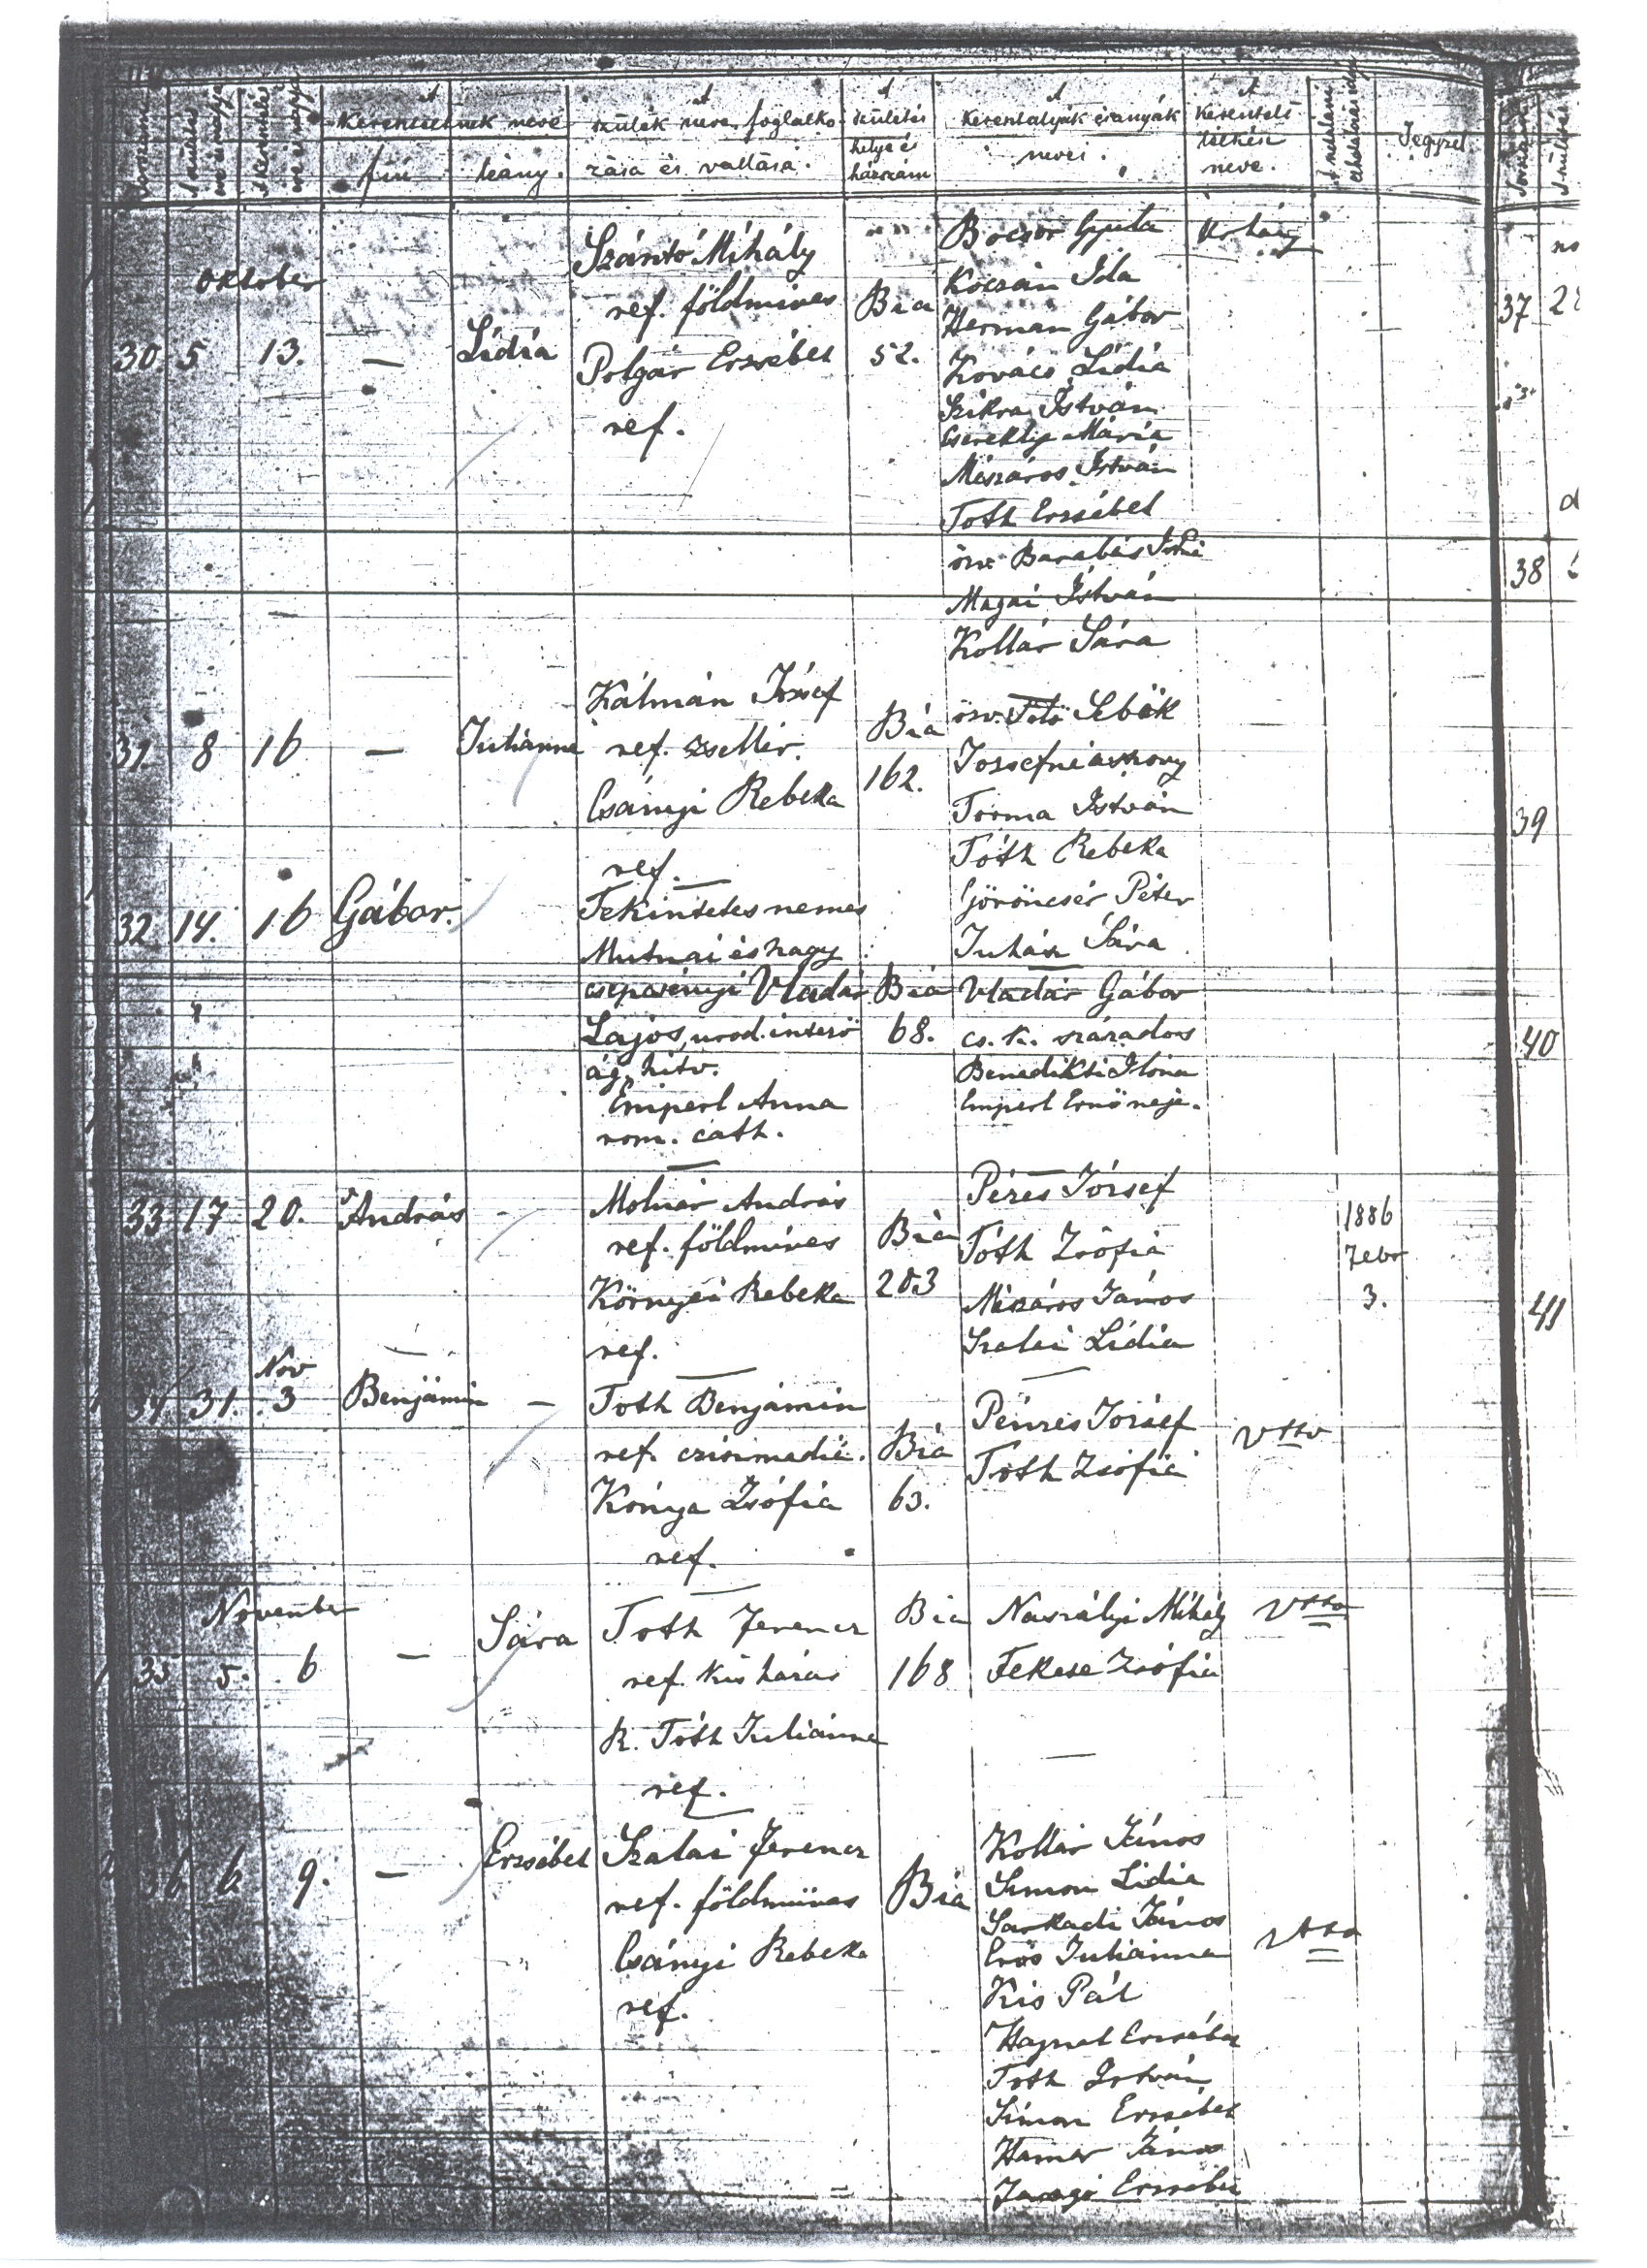 A keresteltnek neve
fiú
leány.
A szülék neve, foglalko-
zása és vallása.
A születés
helye és
házszám
A keresztatyák és anyák
nevei.
A keresztelő
lelkész
neve.
Jegyzet
Oktober
30. 5. 13. — Lídia
Szántó Mihály
ref. földmives
Polgár Erzsébet
ref.
Bia
52.
Bocsor Gyula
Kocsán Ida
Herman Gábor
Kovács Lídia
Szikra István
Mária
Mészáros István
Toth Erzsébet
özv. Barabás
Magai István
Kollár Sára
31 8 16 — Julianna
Kálmán József
ref. zsellér.
Csányi Rebeka
ref.
Bia
162.
özv. Sebők
Józsefné asszony
Torma István
Tóth Rebeka
Göröncsér Péter
Juhász Sára
32 14. 16 Gábor.
Tekintetes nemes
Mutnai és nagy
Vladár
Lajos, urod. intéző
ág. hitv.
Emperl Anna
rom. cath.
Bia
68.
Vladár Gábor
cs. k. százados
Benedikti Ilona
Emperl Ernő neje.
33 17 20. András -
Molnár András
ref. földmíves
Környei Rebeka
ref.
Bia
203
Péres József
Tóth Zsófia
Mészáros János
Szalai Lídia
1886
Febr
3.
Nov
34 31. 3 Benjámin —
Toth Benjámin
ref. czizmadia.
Kónya Zsófia
ref.
Bia
63.
Pénzes József
Toth Zsófia
Utso
November
35 5. 6 — Sára
Toth Ferencz
ref. kis házas
R. Tóth Juliánna
ref.
Bia
168
Naszályi Mihály
Fekese Zsófia
Utso
36 6 9. — Erzsébet
Szalai Ferencz
ref. földmüves
Csányi Rebeka
ref.
Bia
Kollár János
Simon Lidia
Sarkadi János
Erős Julianna
Kis Pál
Hajnal Erzsébet
Tóth István
Simon Erzsébet
Hamar János
Faragó Erzsébet
Utso
37
38
39
40
41